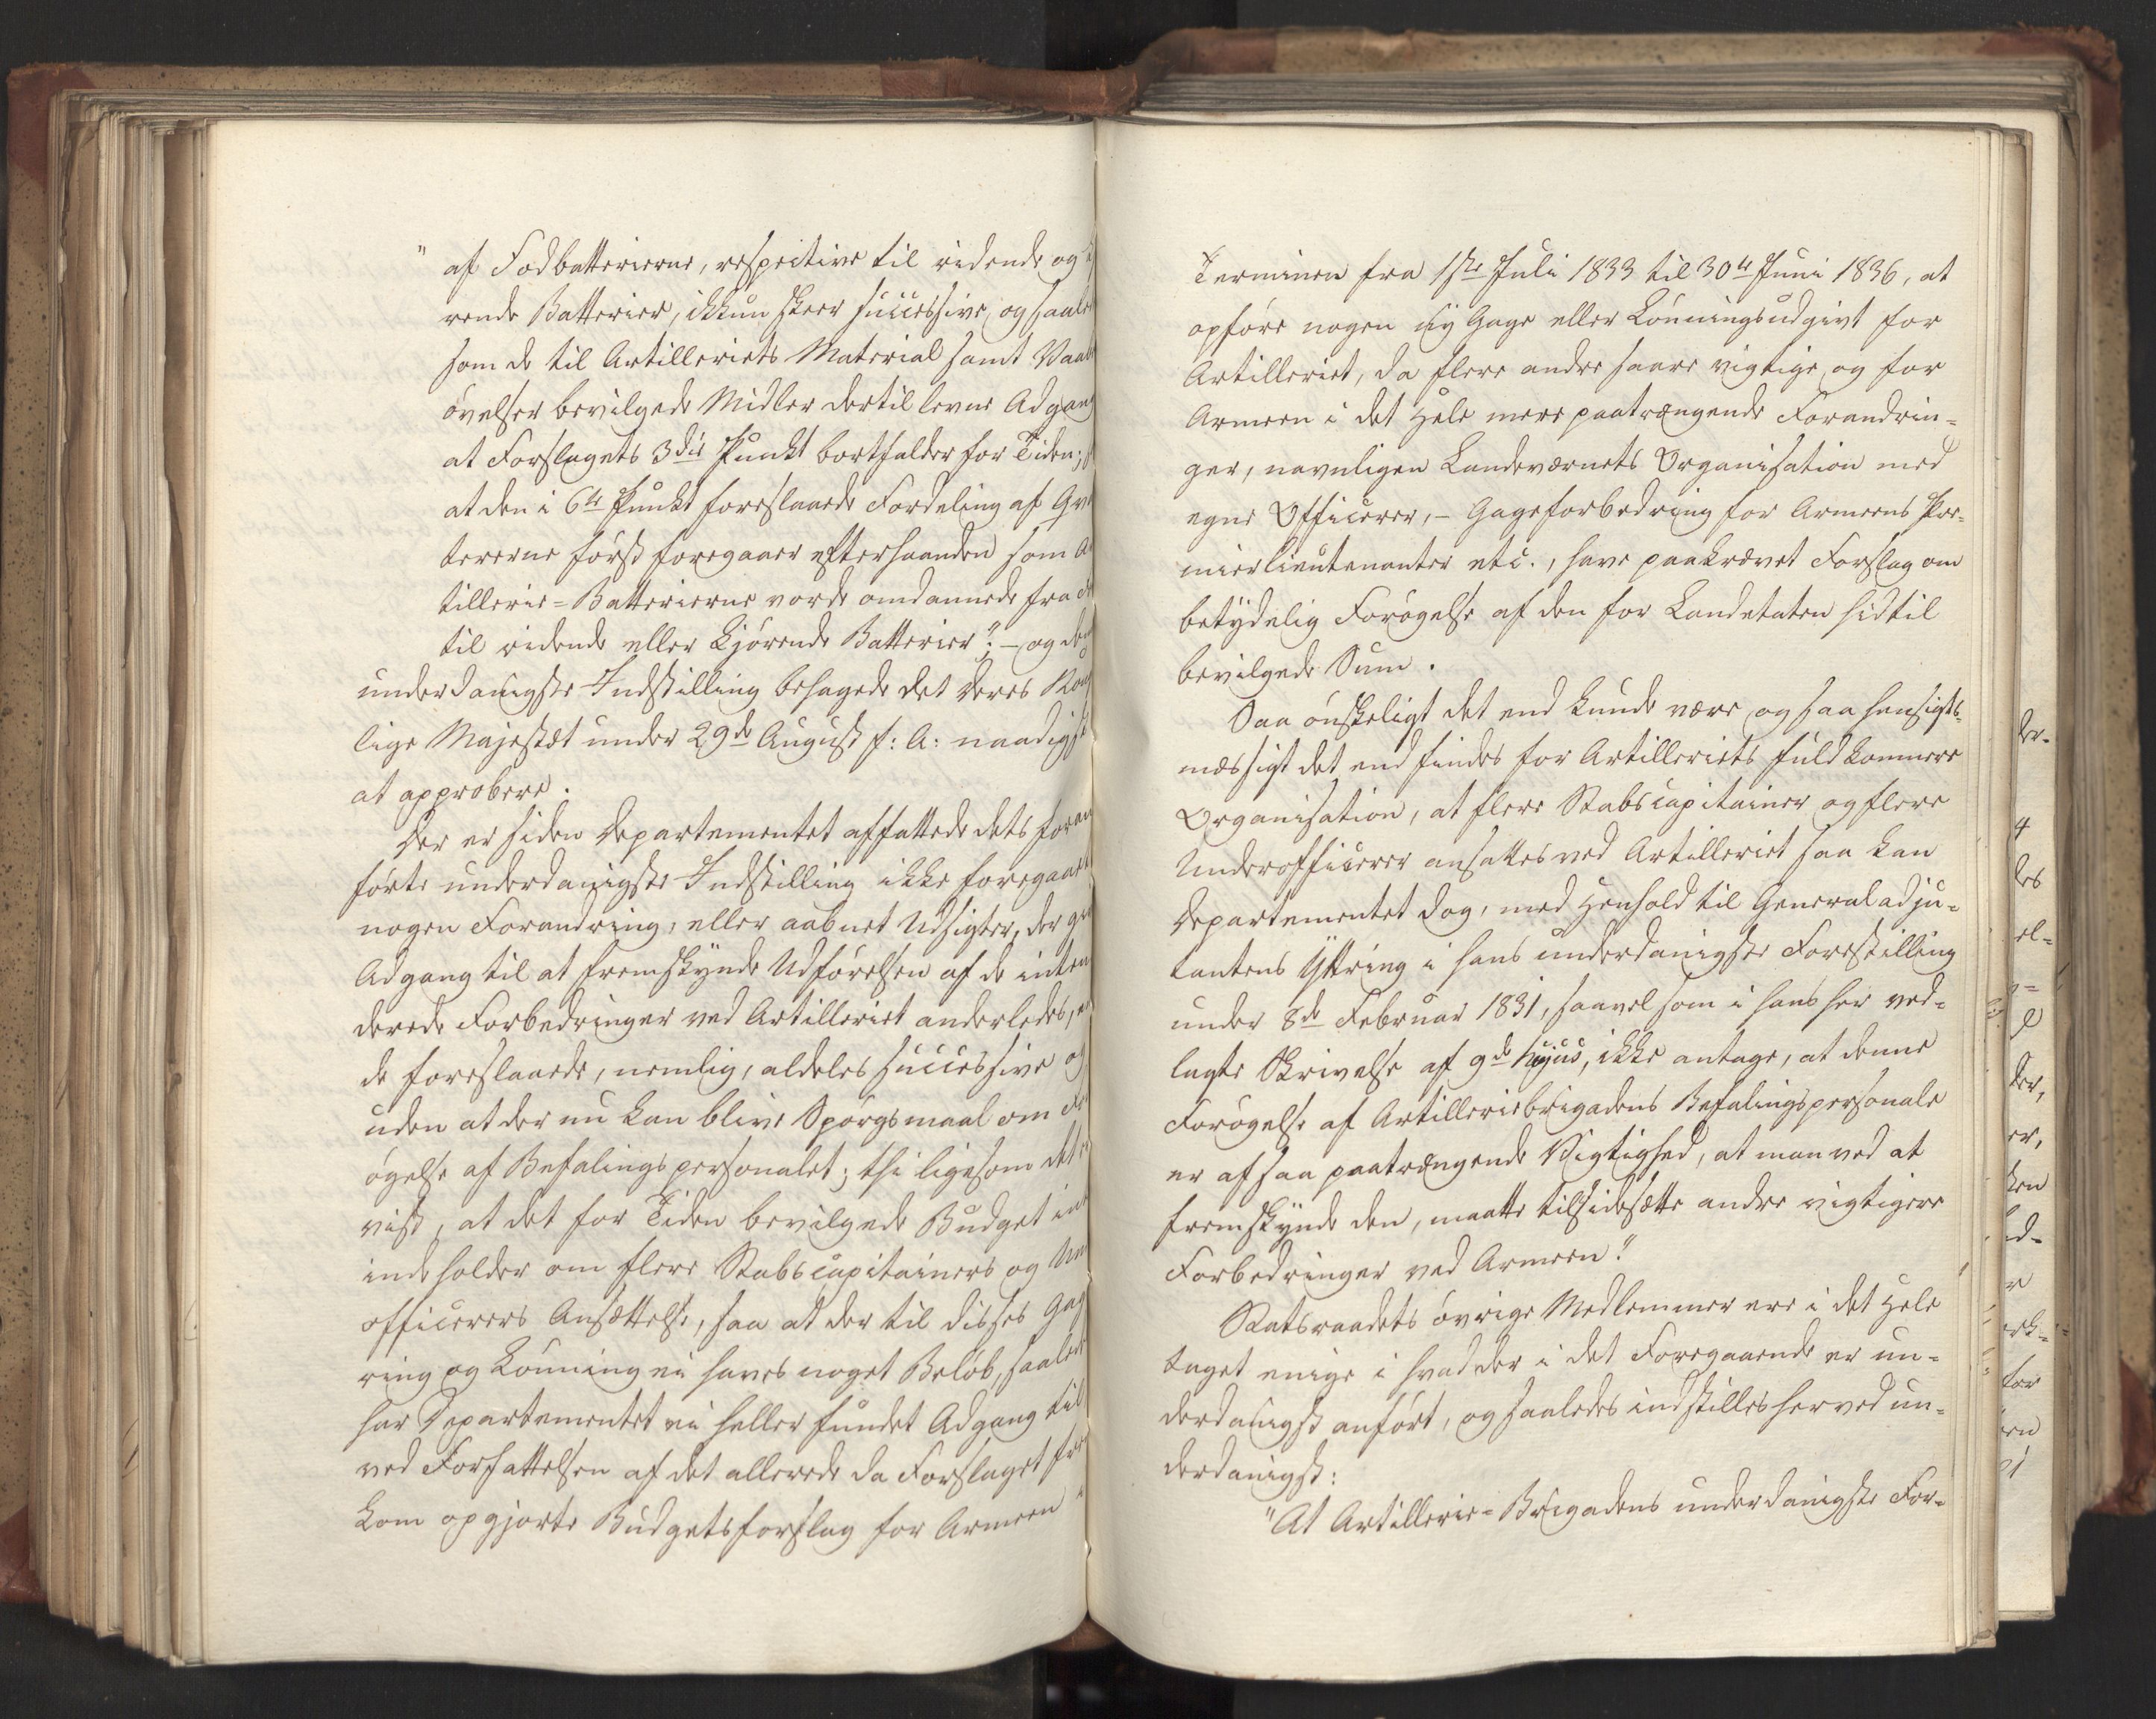 " af Fodbatterierne, respective til ridende og
rende Batterier, ikkun skeer successive, og saale
som de til Artilleriets Material samt Vaab
øvelser bevilgede Midler dertil levne Adgang
at Forslagets 3die Punkt bortfalder for Tiden;
at den i 6te Punkt foreslaaede Fordeling af
tererne først foregaaer efterhaanden som A
tillerie=Batterierne vorde omdannede fra
til ridende eller kjørende Batterier"; – og
underdanigste Indstilling behagede det Deres Kong
lige Majestæt under 29de August f: A: naadigst
at approbere.
Der er siden Departementet affattede dets foran
førte underdanigste Indstilling ikke foregaaet
nogen Forandring, eller aabnet Udsigter, der
Adgang til at fremskynde Udførelsen af de inten
derede Forbedringer ved Artilleriet anderledes,
de foreslaaede, nemlig, aldeles successive og
uden at der nu kan blive Spørgsmaal om
øgelse af Befalingspersonalet; thi ligesom det
vist, at det for Tiden bevilgede Budget
indeholder om flere Stabscapitainers og Un
officerers Ansættelse, saa at der til disses Gag
ring og Lønning ei haves noget Beløb, saaled
har Departementet ei heller fundet Adgang til
ved Forfattelsen af det allerede da Forslaget
kom opgjorte Budgetsforslag for Armeen
Terminen fra 1ste Juli 1833 til 30te Juni 1836, at
opføre nogen ny Gage eller Lønningsudgivt for
Artilleriet, da flere andre saare vigtige og for
Armeen i det Hele mere paatrængende Forandrin=
ger, navnligen Landeværnets Organisation med
egne Officerer, – Gageforbedring for Armeens Pre=
mierlieutenanter etc., have paakrævet Forslag om
betydelig Forøgelse af den for Landetaten hidtil
bevilgede Sum.
Saa ønskeligt det end kunde være og saa hensigts=
mæssigt det end findes for Artilleriets fuldkomnere
Organisation, at flere Stabscapitainer og flere
Underofficerer ansattes ved Artilleriet saa kan
Departementet dog, med Henhold til Generaladju=
tantens Yttring i hans underdanigste Forestilling
under 8de Februar 1831, saavelsom i hans her ved=
lagte Skrivelse af 9de hujus, ikke antage, at denne
Forøgelse af Artilleriebrigadens Befalingspersonale
er af saa paatrængende Vigtighed, at man ved at
fremskynde den, maatte tilsidesætte andre vigtigere
Forbedringer ved Armeen."
Statsraadets øvrige Medlemmer ere i det Hele
taget enige i hvad der i det Foregaaende er un=
derdanigst anført, og saaledes indstilles herved un=
derdanigst:
"At Artillerie=Brigadens underdanigste For=